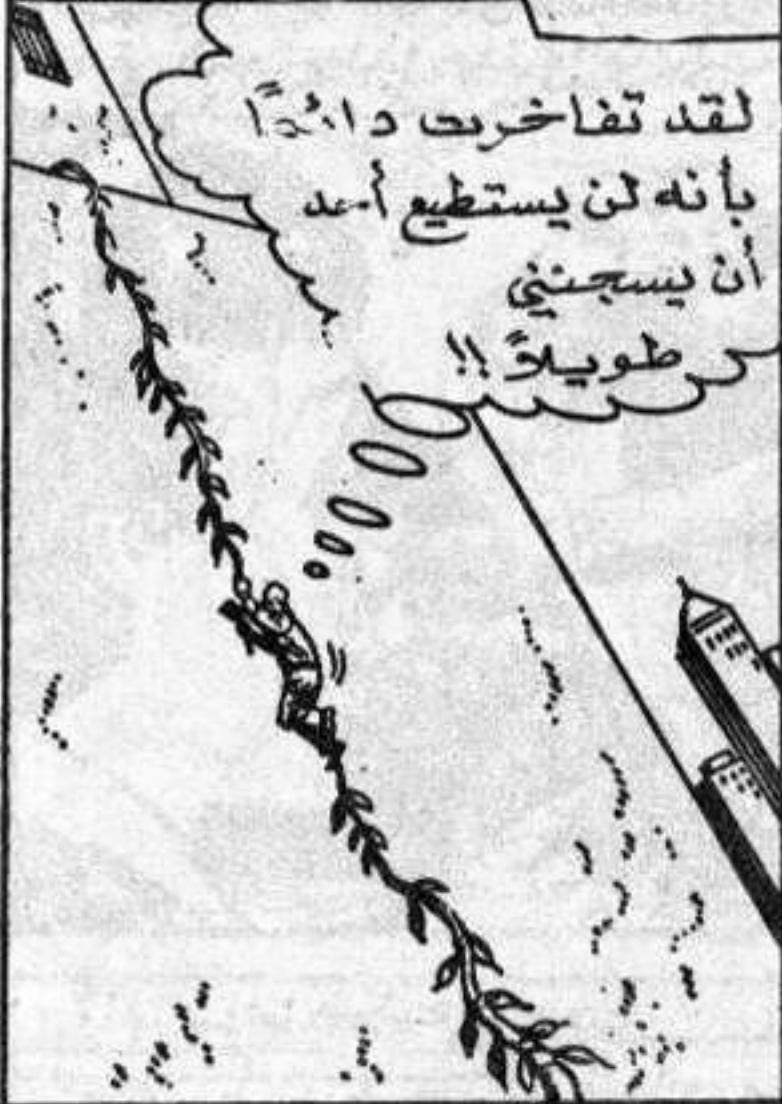 لقد تفاخرت دائمًا
بأنه لن يستطيع أحد
أن يسجنني
طويلاً !!